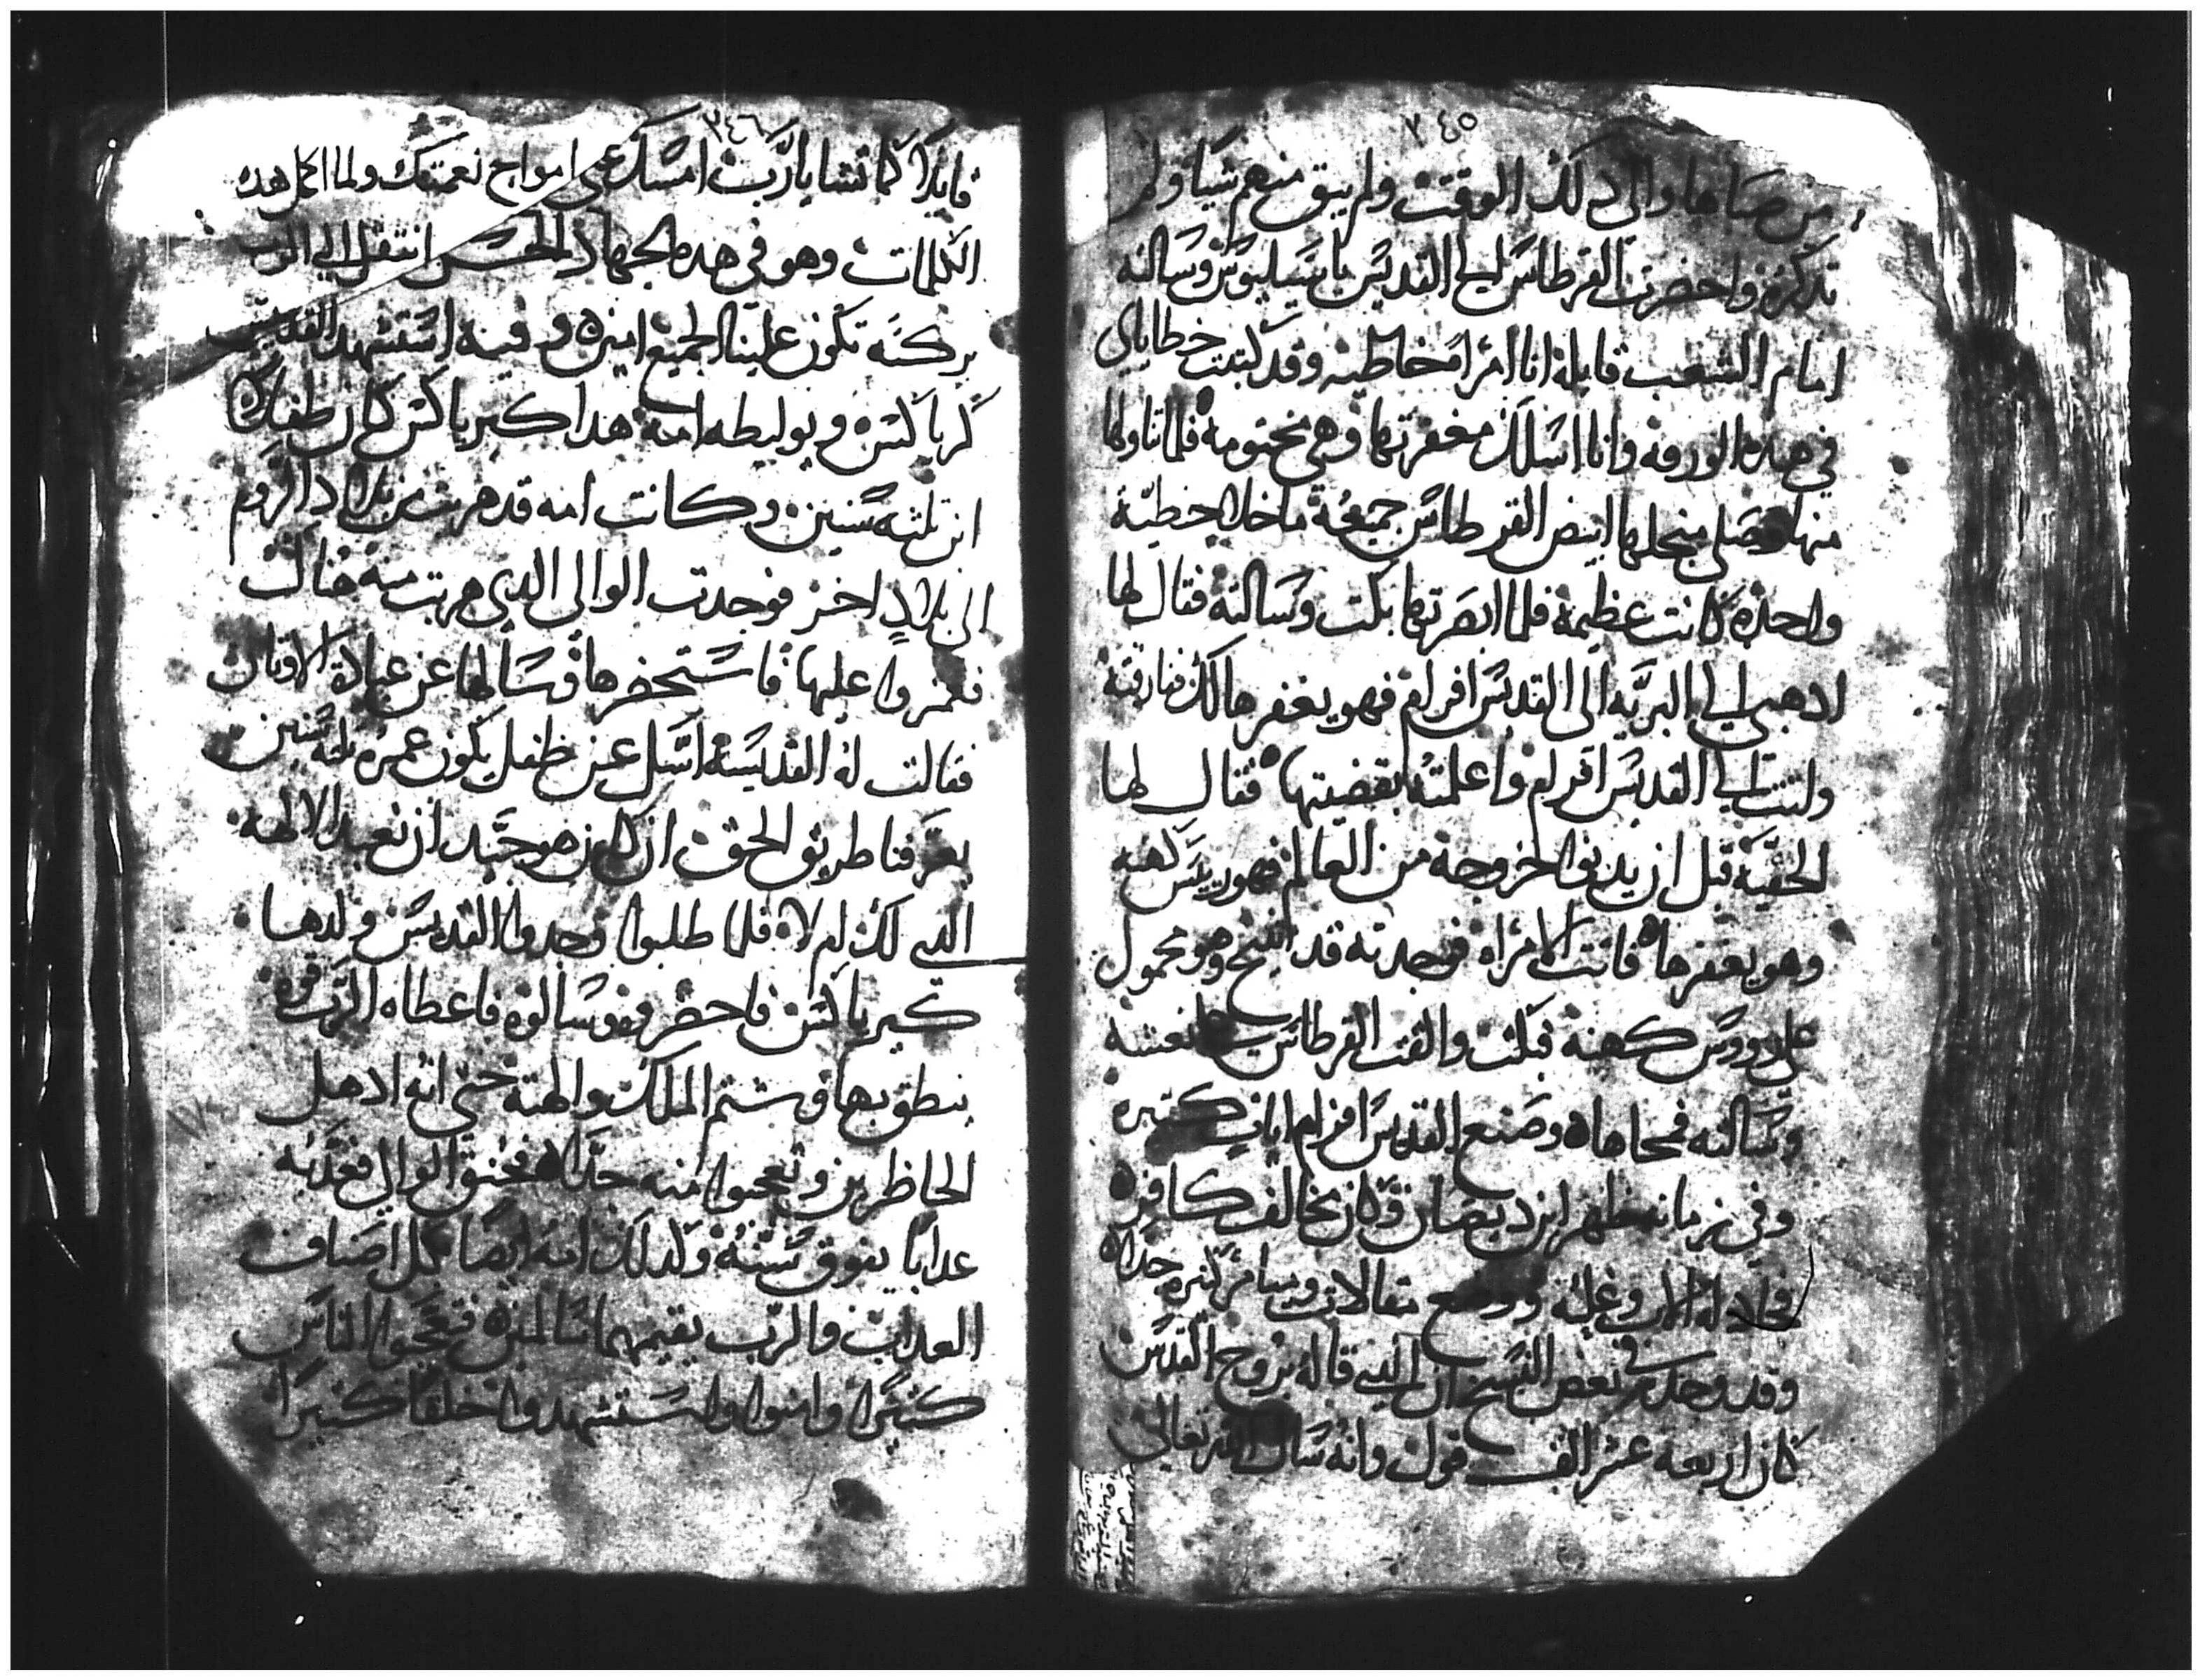 ٢٤٥
من صباها والى دلك الوقت ولم يبق منهم شيا ولم
تدكره واحضرت القرطاس الي القديس باسيليوس وسالته
امام الشعب قايلة انا امراه خاطيه وقد كتبت خطاياي
في هده الورقه وانا اسلك مغفرتها وهي مختومه فلما تناولها
منها وصلى منجلها ابيض القرطاس جميعة ماخلا خطية
واحده كانت عظيمة فلما ابصرتها بكت وسالته فقال لها
ادهبي الي البريه الى القديس افرام فهو يغفرها لك فارقته
واتت الي القديس افرام واعلمته بقضيتها فقال لها
الحقيه قبل ان يدنوا خروجه من العالم فهو رييس كهنه
وهو يغفرها فاتت الامراه فوجدته قد اتنيح وهو محمول
على رووس كهنه فبكت والقت القرطاس نعشه
وسالته فمحاها وصنع القديس افرام ايات كتيره
وفي زمانه ظهر ابن ديصان وكان مخالف كافره
فجادله الاب وغلبه ووضع مقالات وميامر كتيره جدا
وقد وجد في بعض النسخ ان الدي قاله بروح القدس
كان اربعه عشر الف قول وانه سال الله تعالى
٢٤٦
قايلا كما تشا يارب امسك عني امواج نعمتك ولما اكمل هده
الكلمات وهو في هده الجهاد الحسن انتقل الي الرب
بركته تكون علينا الجميع امين وفيه استشهد القديس
كرياكس ويوليطه امه هدا كيرياكس كان طفلا
ابن تلته سنين وكانت امه قد هربت من بلاد الروم
الى بلاد اخر فوجدت الوالى الدي هربت منه هناك
فغمزوا عليها فاستحضرها وسالها عن عبادة الاوتان
فقالت له القديسه اسل عن طفل يكون عمره تلته سنين
يعرفنا طريق الحق ان كان هو جيد ان نعبد الالهه
التي لك ام لا فلما طلبوا وجدوا القديس ولدها
كيرياكس فاحضروه وسالوه فاعطاه الرب قوه
ينطق بها وشتم الملك والهته حتى انه ادهل
الحاظرين وتعجبوا منه جدا فحنق الوالي فعدبه
عدابا يفوق سنه وكدلك امه ايضا بكل اصناف
العداب والرب يقيمهما سالمين فتعجبوا الناس
كتيرا وامنوا واستشهدوا خلقا كتيرا